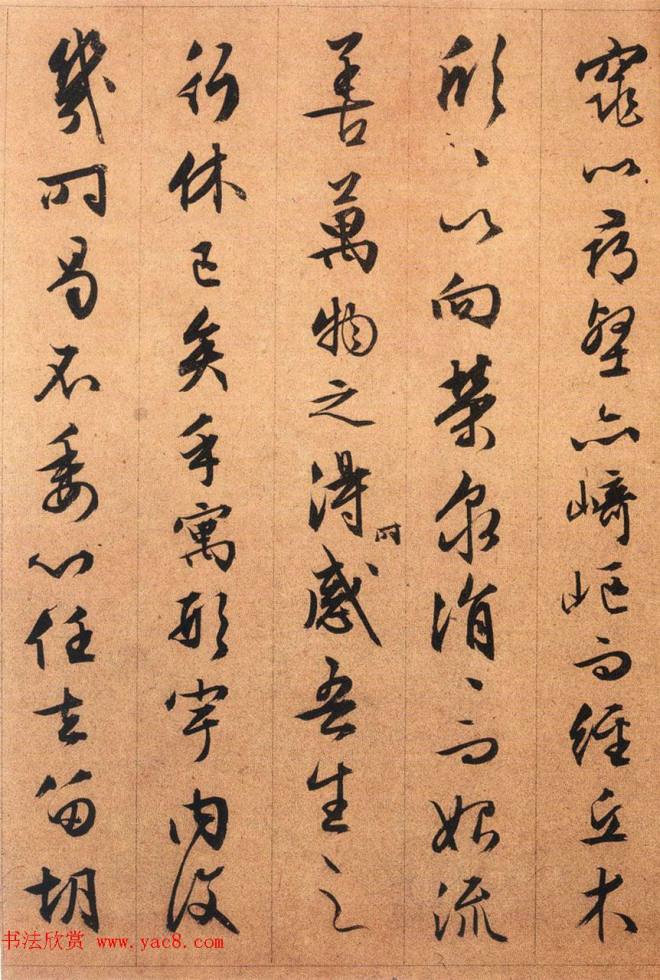 窕以尋壑亦崎嶇而經丘木
欣〻以向榮泉涓〻而始流
善萬物之得時感吾生之
行休已矣乎寓形宇内復
幾時曷不委心任去留胡
书法欣赏 www.yac8.com